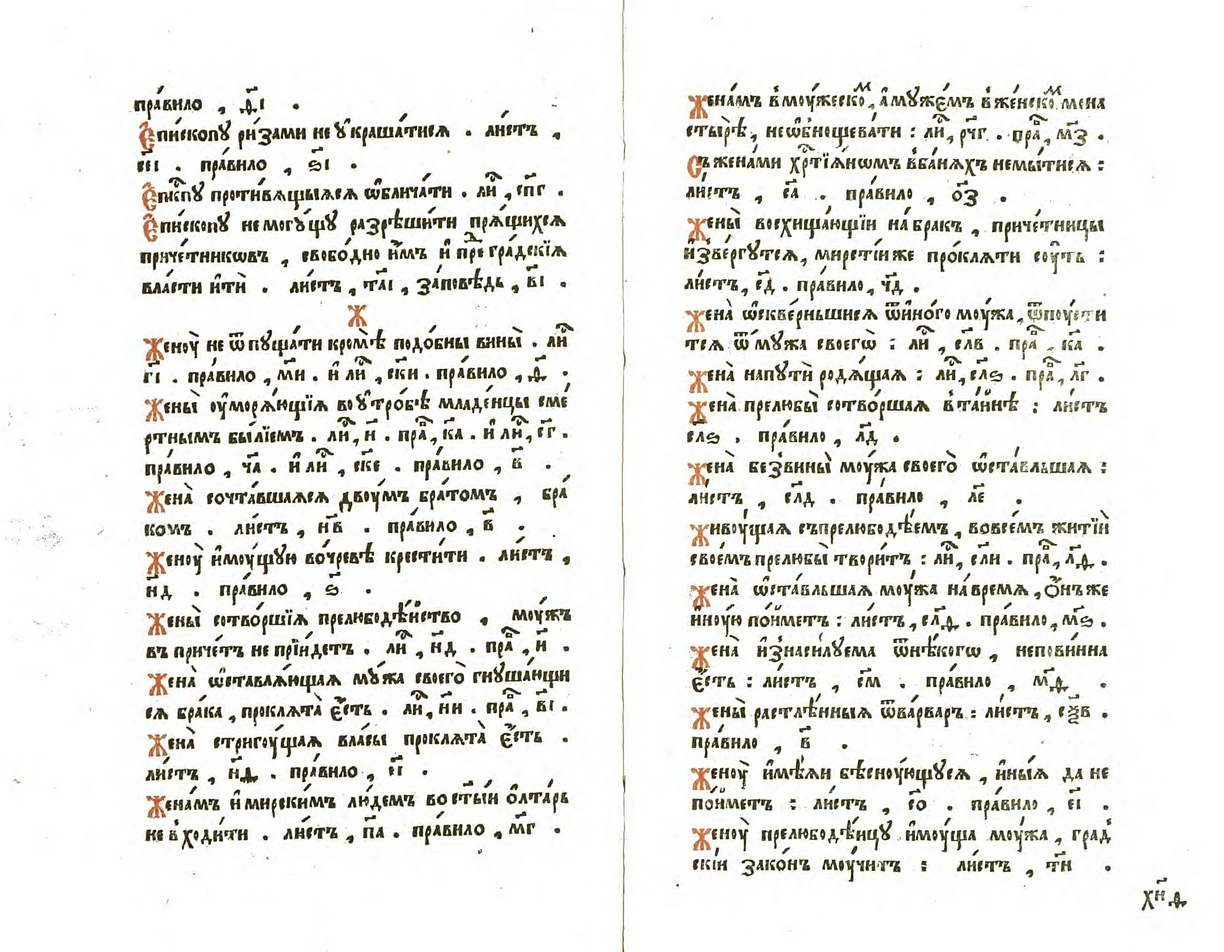 пра́вило , д҃і .
Е҆пи́скопꙋ ри́зами не ᲂу҆краша́тися . ли́стъ ,
се҃і . пра́вило , ѕ҃і .
Е҆пк҃пꙋ проти́вящыяся ѡ҆блича́ти . лиⷭ҇ , сп҃г .
Е҆пи́скопꙋ немогꙋ́щꙋ разрѣши́ти пря́щихся
приче́тникѡвъ , свобо́дно и҆́мъ и҆ преⷣ гра́дскїя
вла́сти и҆ти́ . ли́стъ , та҃і , за́повѣдь , в҃і .
Ж
Женоу̀ не ѿпꙋща́ти кромѣ̀ подо́бны вины̀ . лиⷭ҇
г҃і . пра́вило , м҃и . и҆ лиⷭ҇ , ск҃и . пра́вило , д҃ .
Жены̀ ᲂу҆моря́ющїя во ᲂу҆тро́бѣ младе́нцы сме
ртнымъ бы́лїемъ . лиⷭ҇ , н҃ . праⷡ҇ , к҃а . и҆ лиⷭ҇ , с҃г .
пра́вило , ч҃а . и҆ лиⷭ҇ , ск҃е . пра́вило , в҃ .
Жена̀ сочта́вшаяся двоу́мъ бра́томъ , бра́
комъ . ли́стъ , н҃в . пра́вило , в҃ .
Женоу̀ и҆моу́щую во чре́вѣ крести́ти . ли́стъ ,
н҃д . пра́вило , ѕ҃ .
Жены̀ сотво́ршїя прелюбодѣ́йство , моу́жъ
въ приче́тъ не прїи́детъ . лиⷭ҇ , н҃д . праⷡ҇ , и҃ .
Жена̀ ѡ҆ставля́ющая мꙋ́жа своего̀ гнꙋша́ющи
ся бра́ка , проклята̀ є҆́сть . лиⷭ҇ , н҃и . праⷡ҇ , в҃і .
Жена̀ стригоу́щая власы̀ проклята̀ є҆́сть .
ли́стъ , н҃д . пра́вило , е҃і .
Жена́мъ и҆ мирски́мъ лю́демъ во ст҃ы́и ѻ҆лта́рь
не входи́ти . ли́стъ , п҃а . пра́вило , м҃г .
Жена́мъ в моу́жескоⷨ , а҆ мꙋже́мъ в же́нскоⷨ мона
стырѣ̀ , не ѡ҆бнощева́ти : лиⷭ҇ , рч҃г . праⷡ҇ , м҃з .
Съ жена́ми хрⷭ҇тїя́нѡмъ в ба́няхъ не мы́тися :
ли́стъ , с҃а . пра́вило , о҃з .
Жены̀ восхища́ющїи на́ бракъ , приче́тницы
и҆зве́ргутся , мирсті́и же про́кляти соу́ть :
ли́стъ , с҃д . пра́вило , ч҃д .
Жена̀ ѡ҆скве́рньшися ѿ и҆но́го моу́жа , ѿпоу́сти
тся ѿ мꙋ́жа своегѡ̀ : лиⷭ҇ , сл҃в . праⷡ҇ , к҃а .
Жена̀ на путѝ родя́щая : лиⷭ҇ , сл҃ѕ . праⷡ҇ , л҃г .
Жена̀ прелюбы̀ сотво́ршая в та́йнѣ : ли́стъ
сл҃ѕ . пра́вило , л҃д .
Жена̀ без вины̀ моу́жа своего̀ ѡ҆ста́вльшая :
ли́стъ , сл҃д . пра́вило , л҃е .
Живоу́щая съ прелюбодѣ́емъ , во все́мъ житїѝ
свое́мъ прелюбы̀ твори́тъ : лиⷭ҇ , сл҃и . праⷡ҇ , л҃д .
Жена̀ ѡ҆ста́вльшая моу́жа на вре́мя , ѻ҆́нъ же
и҆ноу́ю по́йметъ : ли́стъ , сл҃д . пра́вило , м҃ѕ .
Жена̀ и҆знаси́луема ѿ нѣ́когѡ , непови́нна
є҆́сть : ли́стъ , см҃ . пра́вило , м҃д .
Жены̀ растлѣ́нныя ѿ ва́рваръ : ли́стъ , сѯ҃в .
пра́вило , в҃ .
Женоу̀ и҆мѣ́яи бѣсноу́ющуся , и҆ны́я да не
по́йметъ : ли́стъ , со҃ . пра́вило , е҃і .
Женоу̀ прелюбодѣ́ицꙋ и҆моу́ща моу́жа , град
скі́и зако́нъ моу́читъ : ли́стъ , ти҃ .
хн҃д